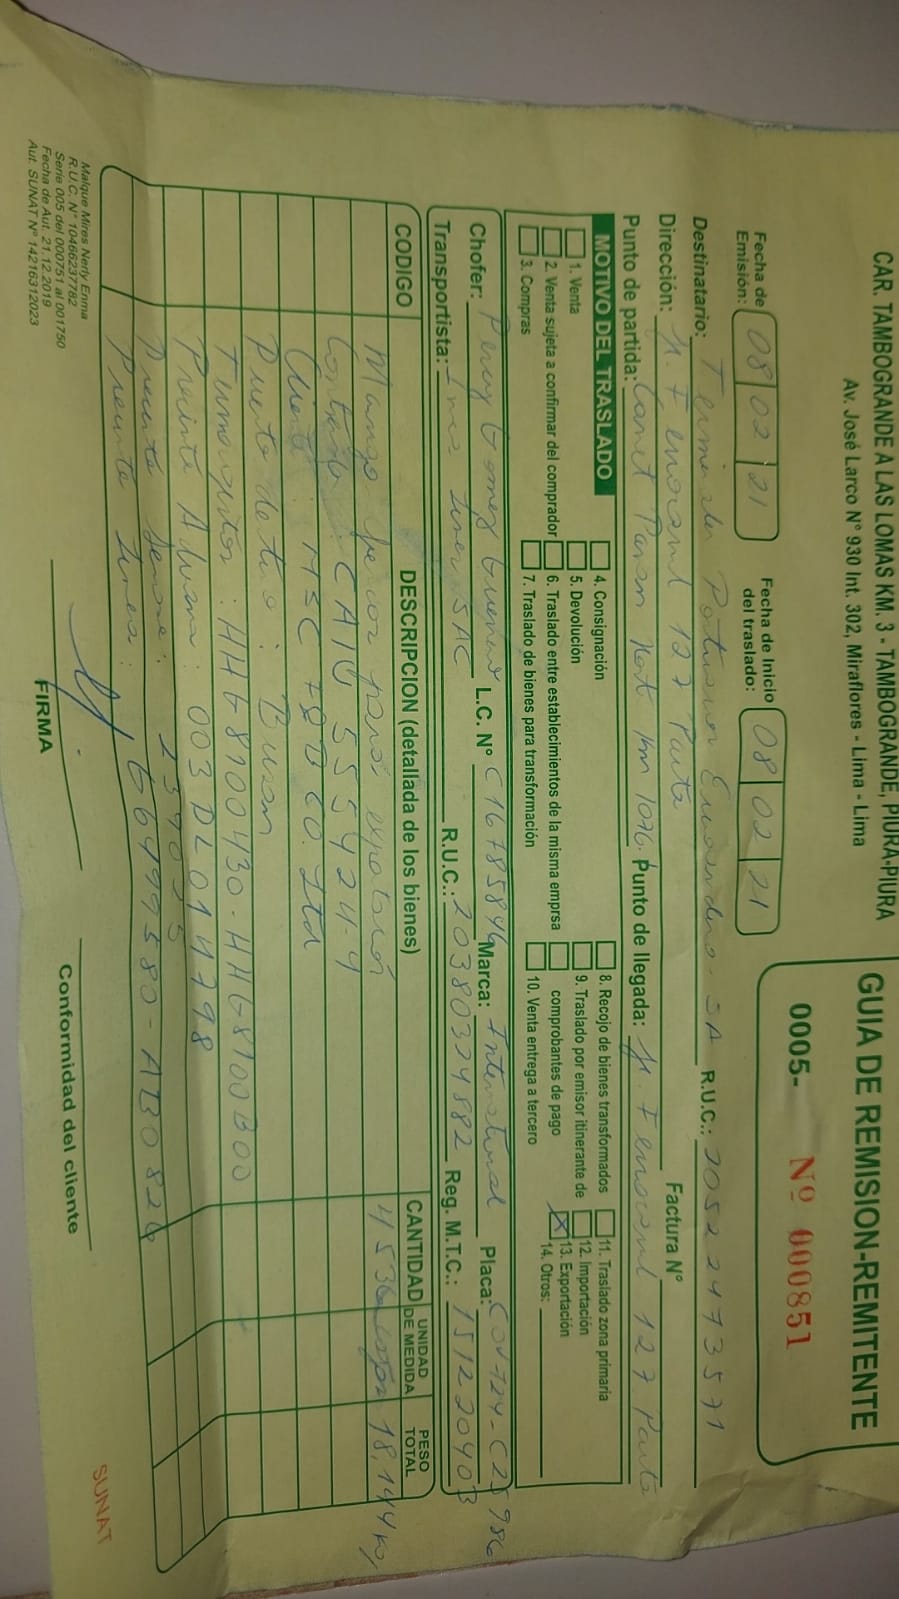 CAR. TAMBOGRANDE A LAS LOMAS KM. 3 - TAMBOGRANDE, PIURA-PIURA
Av. José Larco N° 930 Int. 302, Miraflores - Lima - Lima
GUIA DE REMISION-REMITENTE
0005- Nº 000851
Fecha de Emisión: 08 02 21
Fecha de Inicio del traslado: 08 02 21
Destinatario: Terminales Portuarios Euroandinos SA R.U.C.: 20522473571
Dirección: Jr. Ferrocarril 127 Paita Factura N°
Punto de partida: Carret Panam Nort km 1076. Punto de llegada: Jr. Ferrocarril 127 Paita
MOTIVO DEL TRASLADO
1. Venta
2. Venta sujeta a confirmar del comprador
3. Compras
4. Consignación
5. Devolución
6. Traslado entre establecimientos de la misma emprsa
7. Traslado de bienes para transformación
8. Recojo de bienes transformados
9. Traslado por emisor itinerante de comprobantes de pago
10. Venta entrega a tercero
11. Traslado zona primaria
12. Importación
X 13. Exportación
14. Otros:
Chofer: Percy Gomez L.C. N° C16785846 Marca: International Placa:
Transportista: R.U.C.: 20380374882 Reg. M.T.C.: 151220403
CODIGO DESCRIPCION (detallada de los bienes) CANTIDAD UNIDAD DE MEDIDA PESO TOTAL
Mango fresco para exportación 4536 cajas 18,144 kg
Contenedor: CAIU 555424-4
Cliente: CO. Ltd
Puerto destino: Busan
Termógrafos: HHG8100430-HHG8100B00
Precinto Aduana: 003DL014798
Precinto Senasa:
Precinto Linea: 66499580-AB0826
FIRMA
Conformidad del cliente
SUNAT
Malque Mires Nerly Enma
R.U.C. N° 10466237782
Serie 005 del 000751 al 001750
Fecha de Aut. 21.12.2019
Aut. SUNAT N° 14216312023